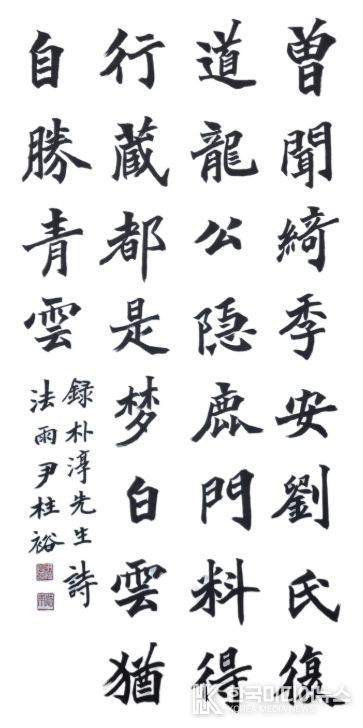 曾聞綺季安劉氏復
道龍公隐鹿門料得
行藏都是梦白雲猶
自勝青雲
録朴淳先生詩
法雨尹柱裕
한국미디어뉴스
KOREA MEDIA NEWS